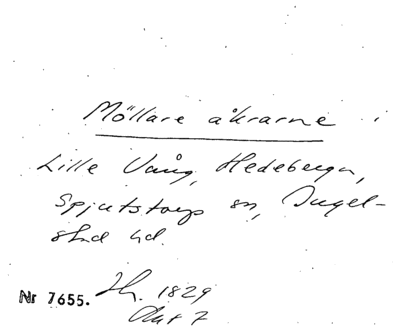 Möllare åkrarne i
Lille Vång, Hedeberga,
Spjutstorp sn, Ingel-
stad hd.
Nr 7655. 1829
Akt 7